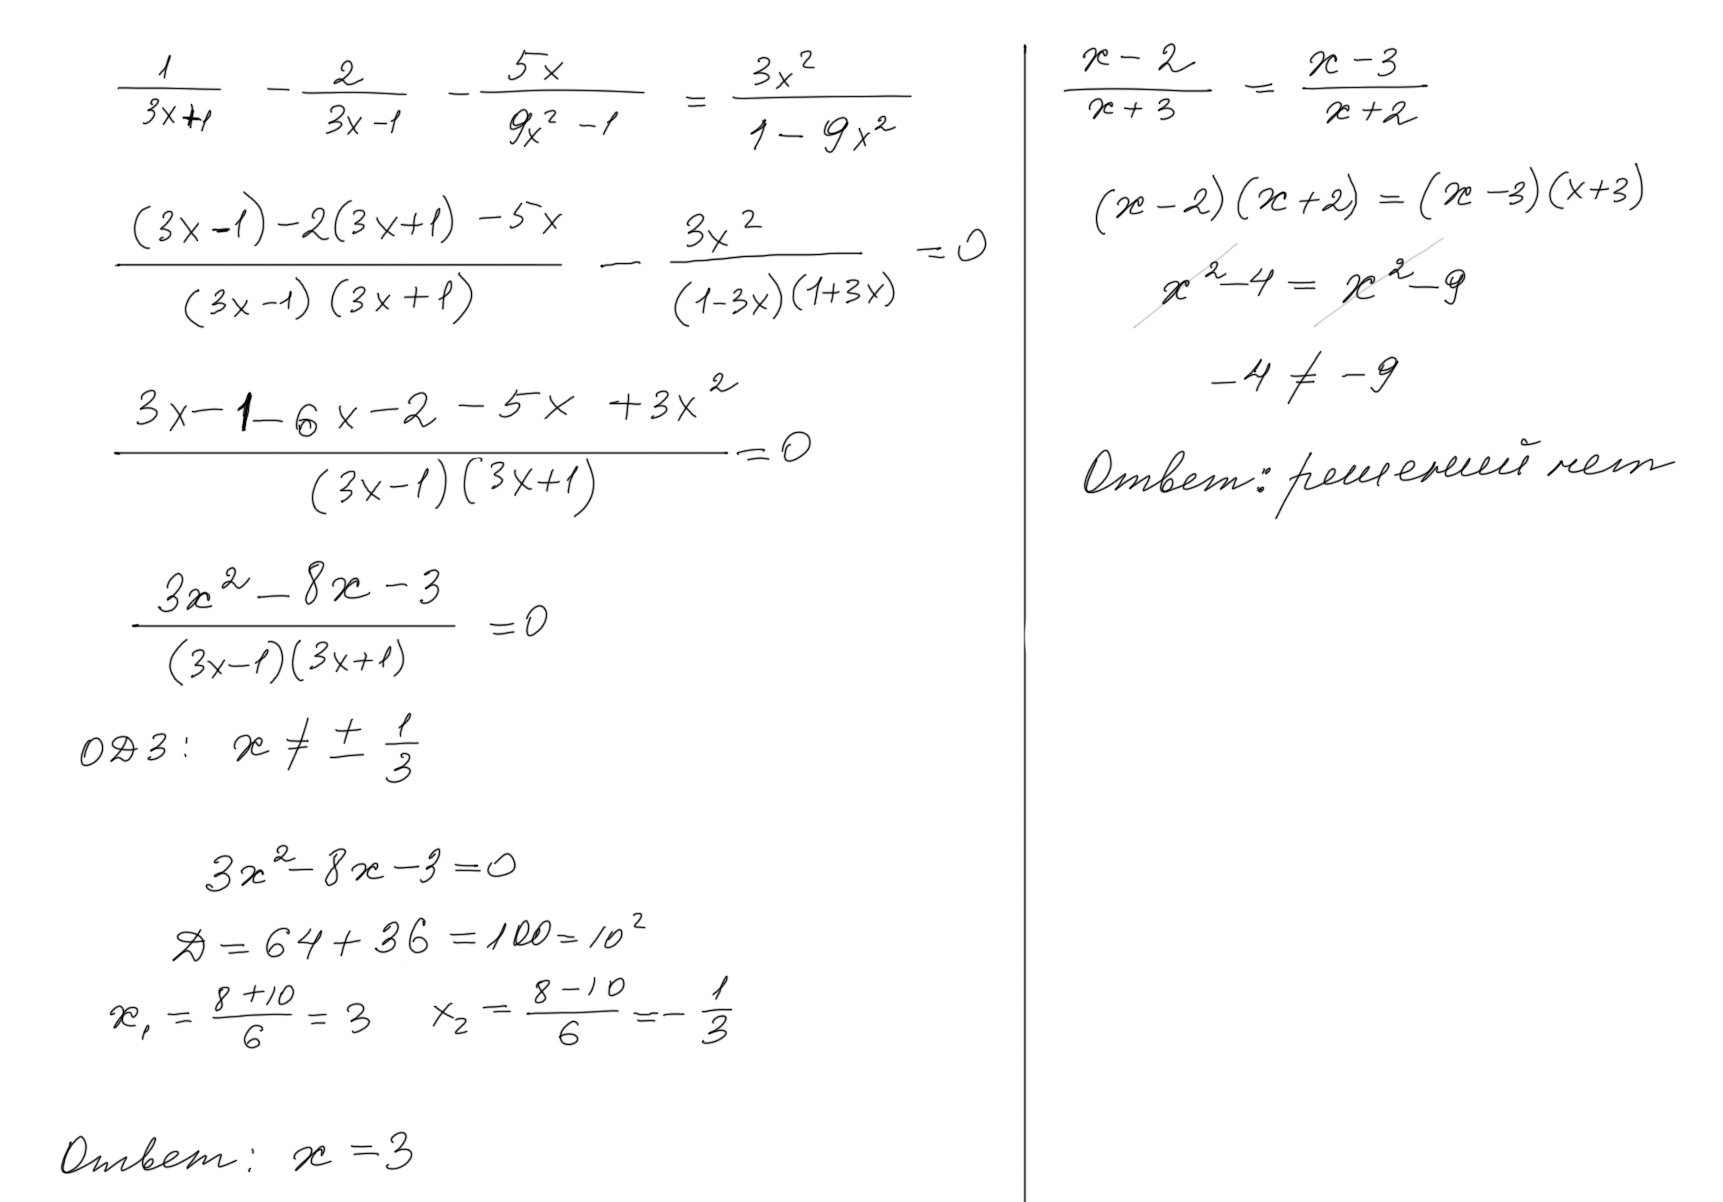 1/(3x+1) - 2/(3x-1) - 5x/(9x² - 1) = 3x²/(1 - 9x²)
((3x-1) - 2(3x+1) - 5x)/((3x-1)(3x+1)) - 3x²/((1-3x)(1+3x)) = 0
(3x - 1 - 6x - 2 - 5x + 3x²)/((3x-1)(3x+1)) = 0
(3x² - 8x - 3)/((3x-1)(3x+1)) = 0
ОДЗ: x ≠ ± 1/3
3x² - 8x - 3 = 0
Д = 64 + 36 = 100 = 10²
x₁ = (8+10)/6 = 3 x₂ = (8-10)/6 = - 1/3
Ответ: x = 3
(x - 2)/(x + 3) = (x - 3)/(x + 2)
(x - 2)(x + 2) = (x - 3)(x + 3)
x² - 4 = x² - 9
-4 ≠ -9
Ответ: решений нет